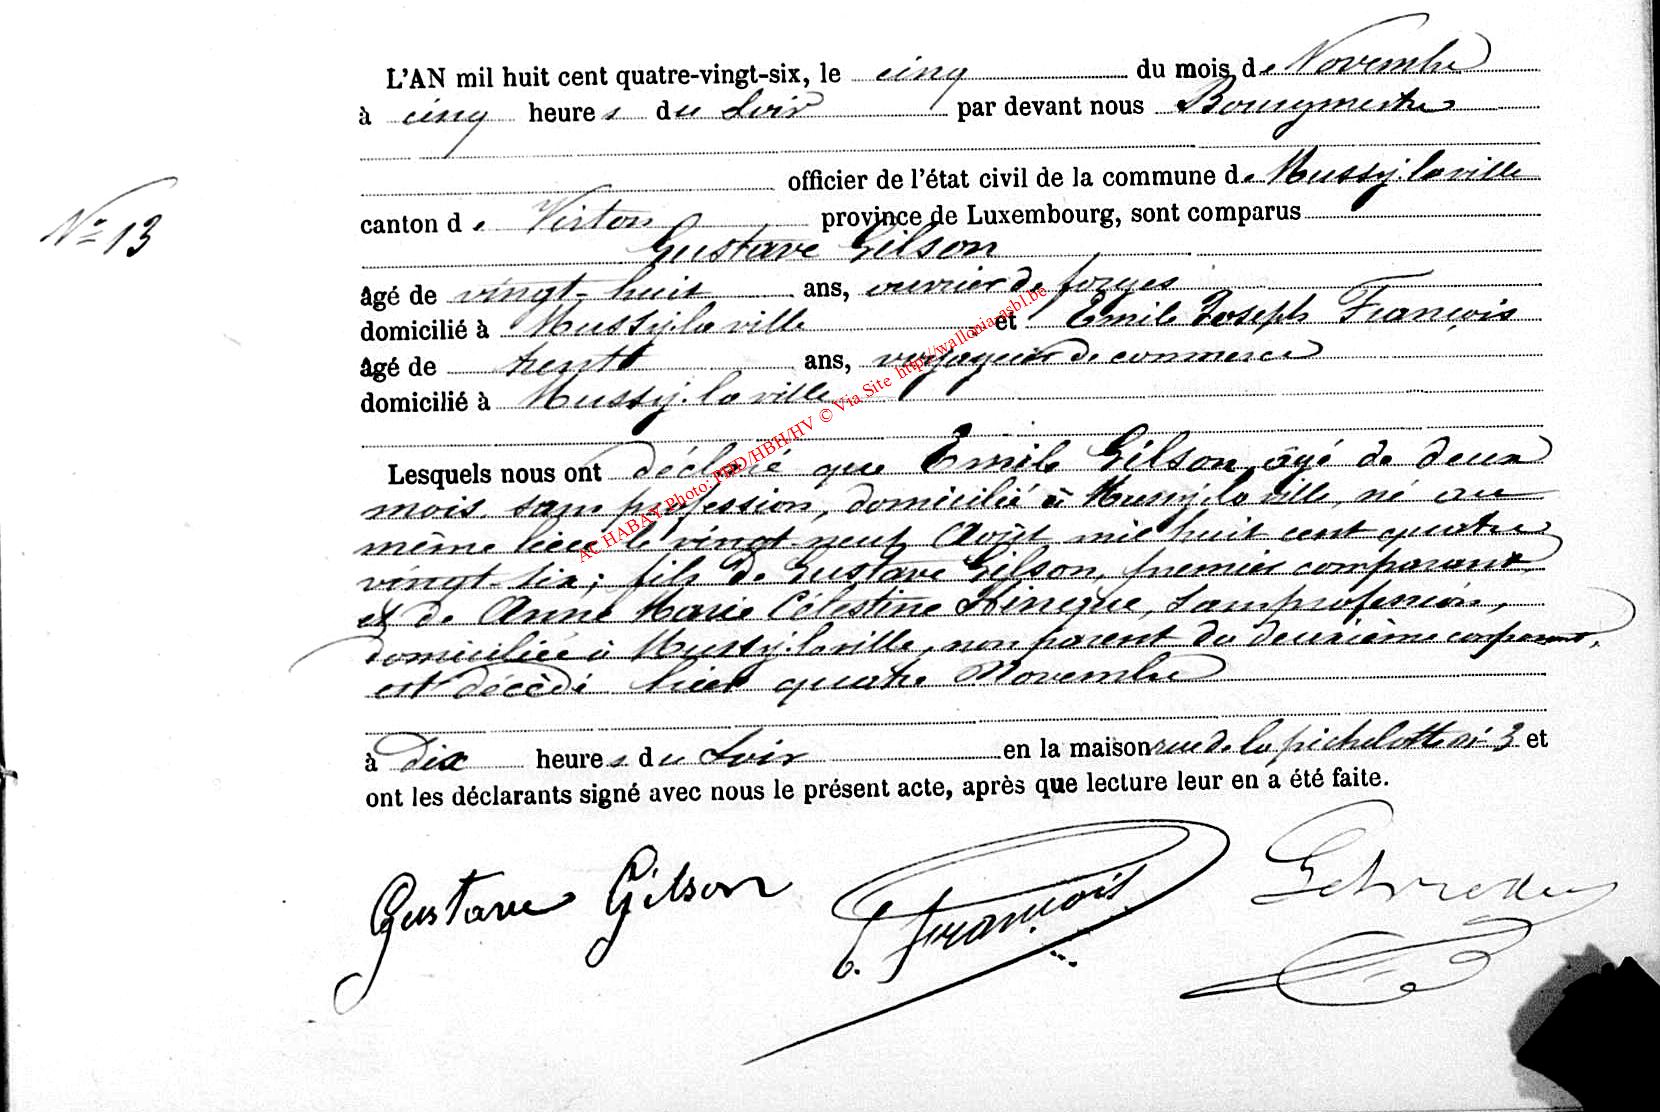 L'AN mil huit cent quatre-vingt-six, le cinq du mois de Novembre
à cinq heures du soir par devant nous Bourgmestre
officier de l'état civil de la commune de Mussy-la-ville
N° 13
canton de Virton province de Luxembourg, sont comparus
Gustave Gilson
âgé de vingt-huit ans, ouvrier de forges
domicilié à Mussy-la ville et Emile Joseph François
âgé de trente ans, voyageur de commerce
domicilié à Mussy-la ville
Lesquels nous ont déclaré que Emile Gilson, âgé de deux
mois, sans profession, domicilié à Mussy-la ville, né au
même lieu le vingt-neuf Août mil huit cent quatre
vingt-six; fils de Gustave Gilson, premier comparant
et de Anne Marie Célestine, sans profession,
domiciliée à Mussy-la ville, non parent du deuxième comparant,
est décédé hier quatre Novembre
à dix heures du soir en la maison rue de la pichelotte n° 3 et
ont les déclarants signé avec nous le présent acte, après que lecture leur en a été faite.
Gustave Gilson E. François
AC HABAY Photo: PHD/HBH/HV © Via Site http://wallonia-asbl.be